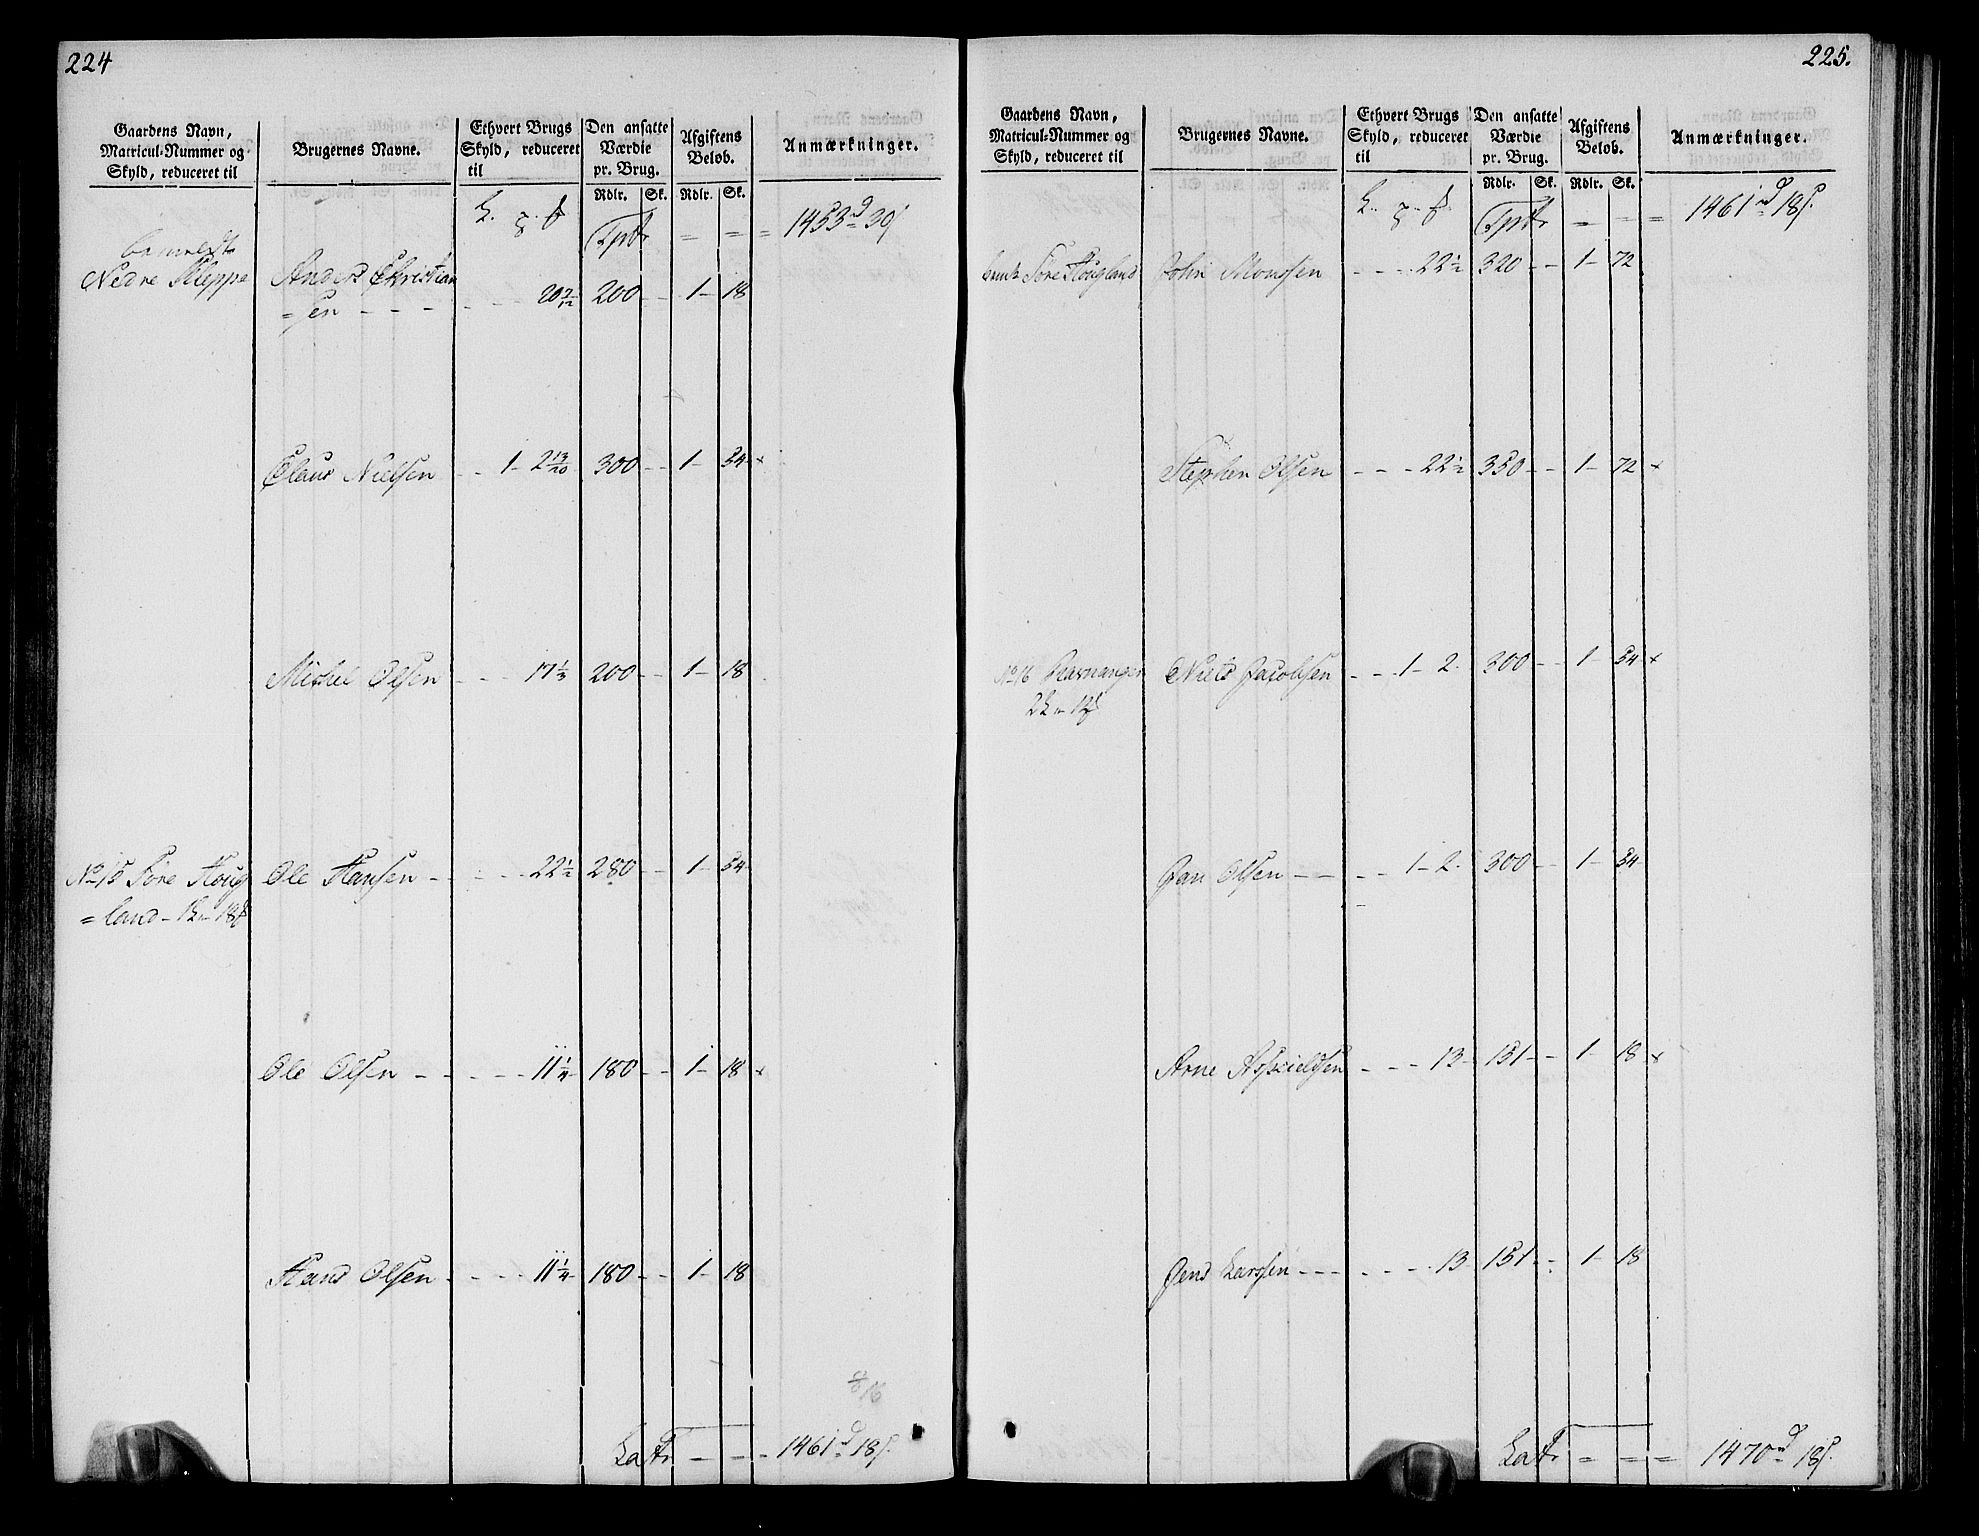 224
Gaardens Navn, Matricul-Nummer og Skyld, reduceret til
Brugernes Navne.
Ethvert Brugs Skyld, reduceret til
Den ansatte Værdie pr. Brug.
Afgiftens Beløb.
Anmærkninger.
Rdlr. Sk. Rdlr. Sk.
Tprt = = = 1453 d 39 s
bemeldte
Nedre Kleppe Anders Christian
=sen - - - - - - 20 7/12 200 - - 1 - 18
Claus Nielsen - - 1 - 2 13/20 300 - - 1 - 54 x
Michel Olsen - - - 17 1/3 200 - - 1 - 18
No 15 Tore Houg Ole Hansen - - - - 22 1/2 280 - - 1 - 54
=land - 1 - 18
Ole Olsen - - - - - 11 1/4 180 - - 1 - 18 x
Hans Olsen - - - - 11 1/4 180 - - 1 - 18
Latr - - - 1461 d 18 s.
225.
Gaardens Navn, Matricul-Nummer og Skyld, reduceret til
Brugernes Navne.
Ethvert Brugs Skyld, reduceret til
Den ansatte Værdie pr. Brug.
Afgiftens Beløb.
Anmærkninger.
Rdlr. Sk. Rdlr. Sk.
Tprt = = = 1461 d 18 s.
Tore Hougland John Monssen - - - 22 1/2 320 - - 1 - 72
Stephen Olsen - - - 22 1/2 350 - - 1 - 72 x
No 16 Ravnanger Niels Jacobsen - - - 1 - 2 - 300 - - 1 - 54 x
Jan Olsen - - - - 1 - 2 - 300 - - 1 - 54
Arne Askieldsen - - - 13 - 151 - - 1 - 18 x
Jens Larssen - - - - - - 13 151 - - 1 - 18
Latr = = = 1470 d 18 s.